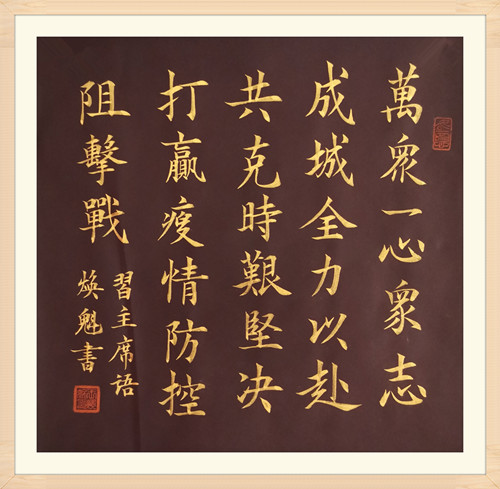 萬衆一心衆志
成城全力以赴
共克時艱堅决
打贏疫情防控
阻擊戰
習主席语
焕魁書